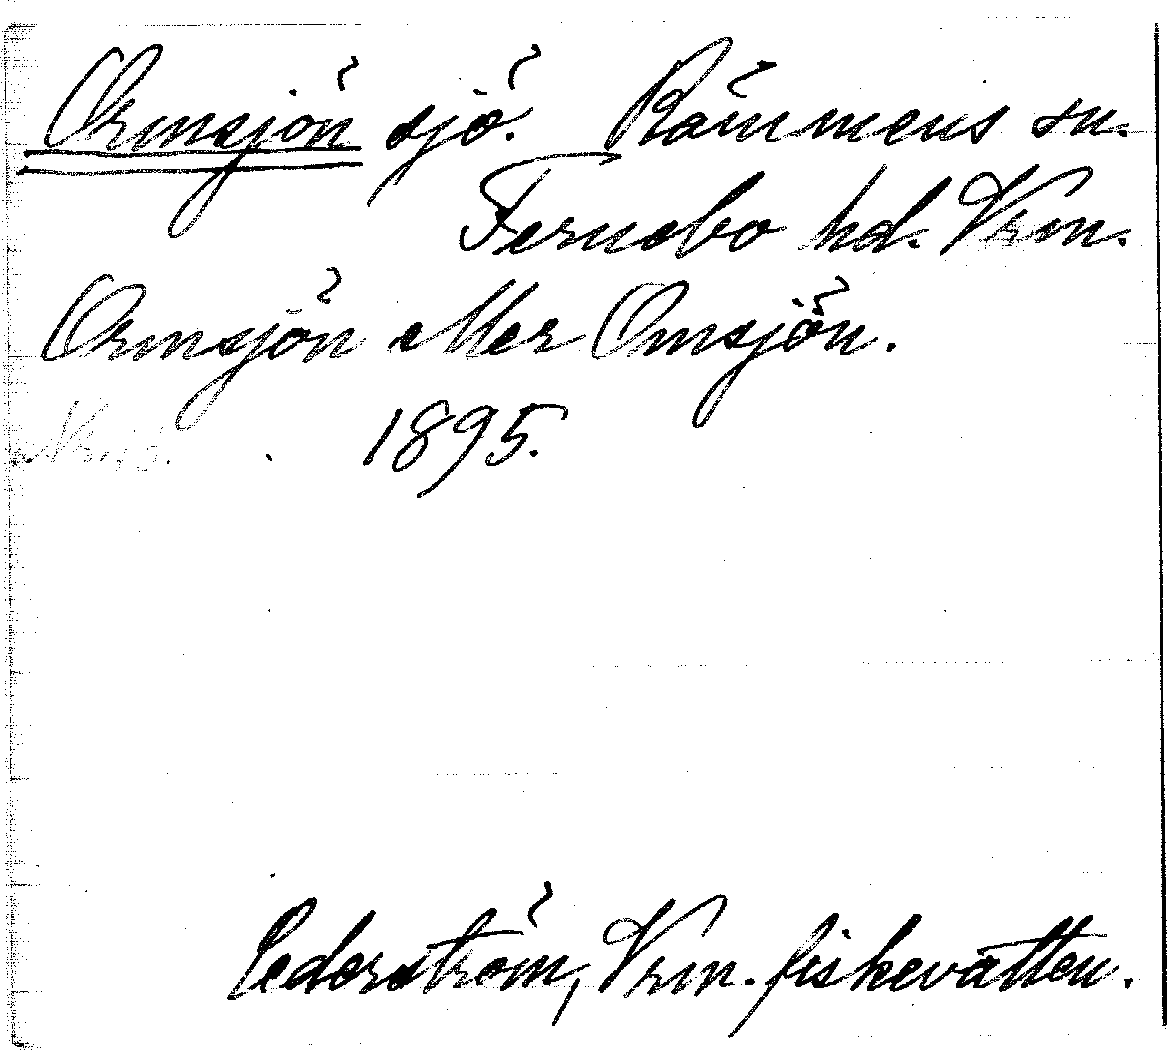 Ormsjön sjö. Rämmens sn.
Fernebo hd. Vrm.
Ormsjön eller Omsjön.
1895.
Cederström, Vrm. fiskevatten.